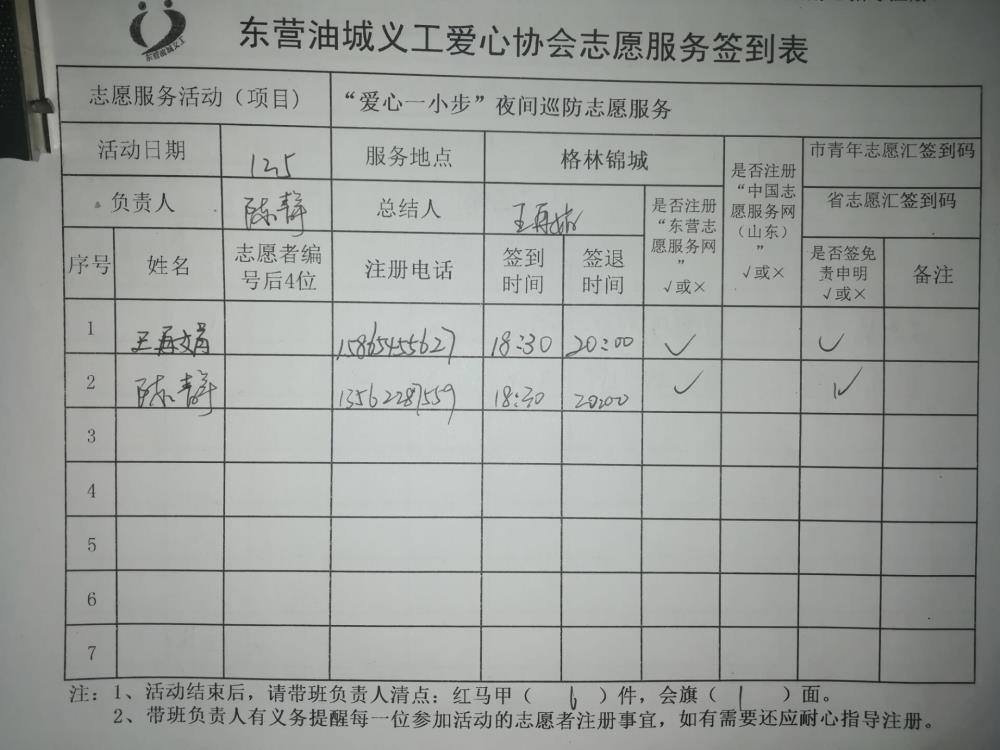 东营油城义工
东营油城义工爱心协会志愿服务签到表
志愿服务活动（项目） “爱心一小步”夜间巡防志愿服务
活动日期 12.5 服务地点 格林锦城 是否注册“中国志愿服务网（山东）” √或× 市青年志愿汇签到码
负责人 陈静 总结人 王再娟 是否注册“东营志愿服务网” √或× 省志愿汇签到码
序号 姓名 志愿者编号后4位 注册电话 签到时间 签退时间 是否签免责申明 √或× 备注
1 王再娟 15865455627 18:30 20:00 √ √
2 陈静 13562287559 18:30 20:00 √ √
3
4
5
6
7
注：1、活动结束后，请带班负责人清点：红马甲（ 6 ）件，会旗（ 1 ）面。
2、带班负责人有义务提醒每一位参加活动的志愿者注册事宜，如有需要还应耐心指导注册。